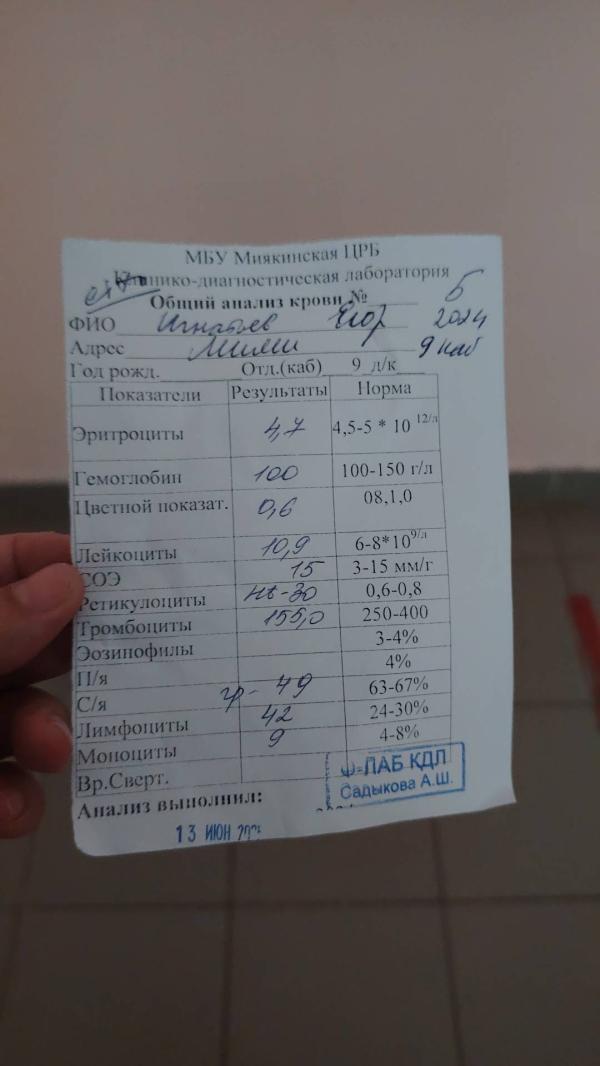 МБУ Миякинская ЦРБ
Клинико-диагностическая лаборатория
Общий анализ крови № 5
ФИО Игнатьев Егор 2024
Адрес 9 каб
Год рожд. Отд.(каб) 9 д/к
Показатели Результаты Норма
Эритроциты 4,7 4,5-5 * 10 12/л
Гемоглобин 100 100-150 г/л
Цветной показат. 0,6 08,1,0
Лейкоциты 10,9 6-8*10 9/л
СОЭ 15 3-15 мм/г
Ретикулоциты Ht-30 0,6-0,8
Тромбоциты 155,0 250-400
Эозинофилы 3-4%
П/я 4%
С/я гр- 49 63-67%
Лимфоциты 42 24-30%
Моноциты 9 4-8%
Вр.Сверт.
Анализ выполнил:
ЛАБ КДЛ
Садыкова А.Ш.
13 ИЮН